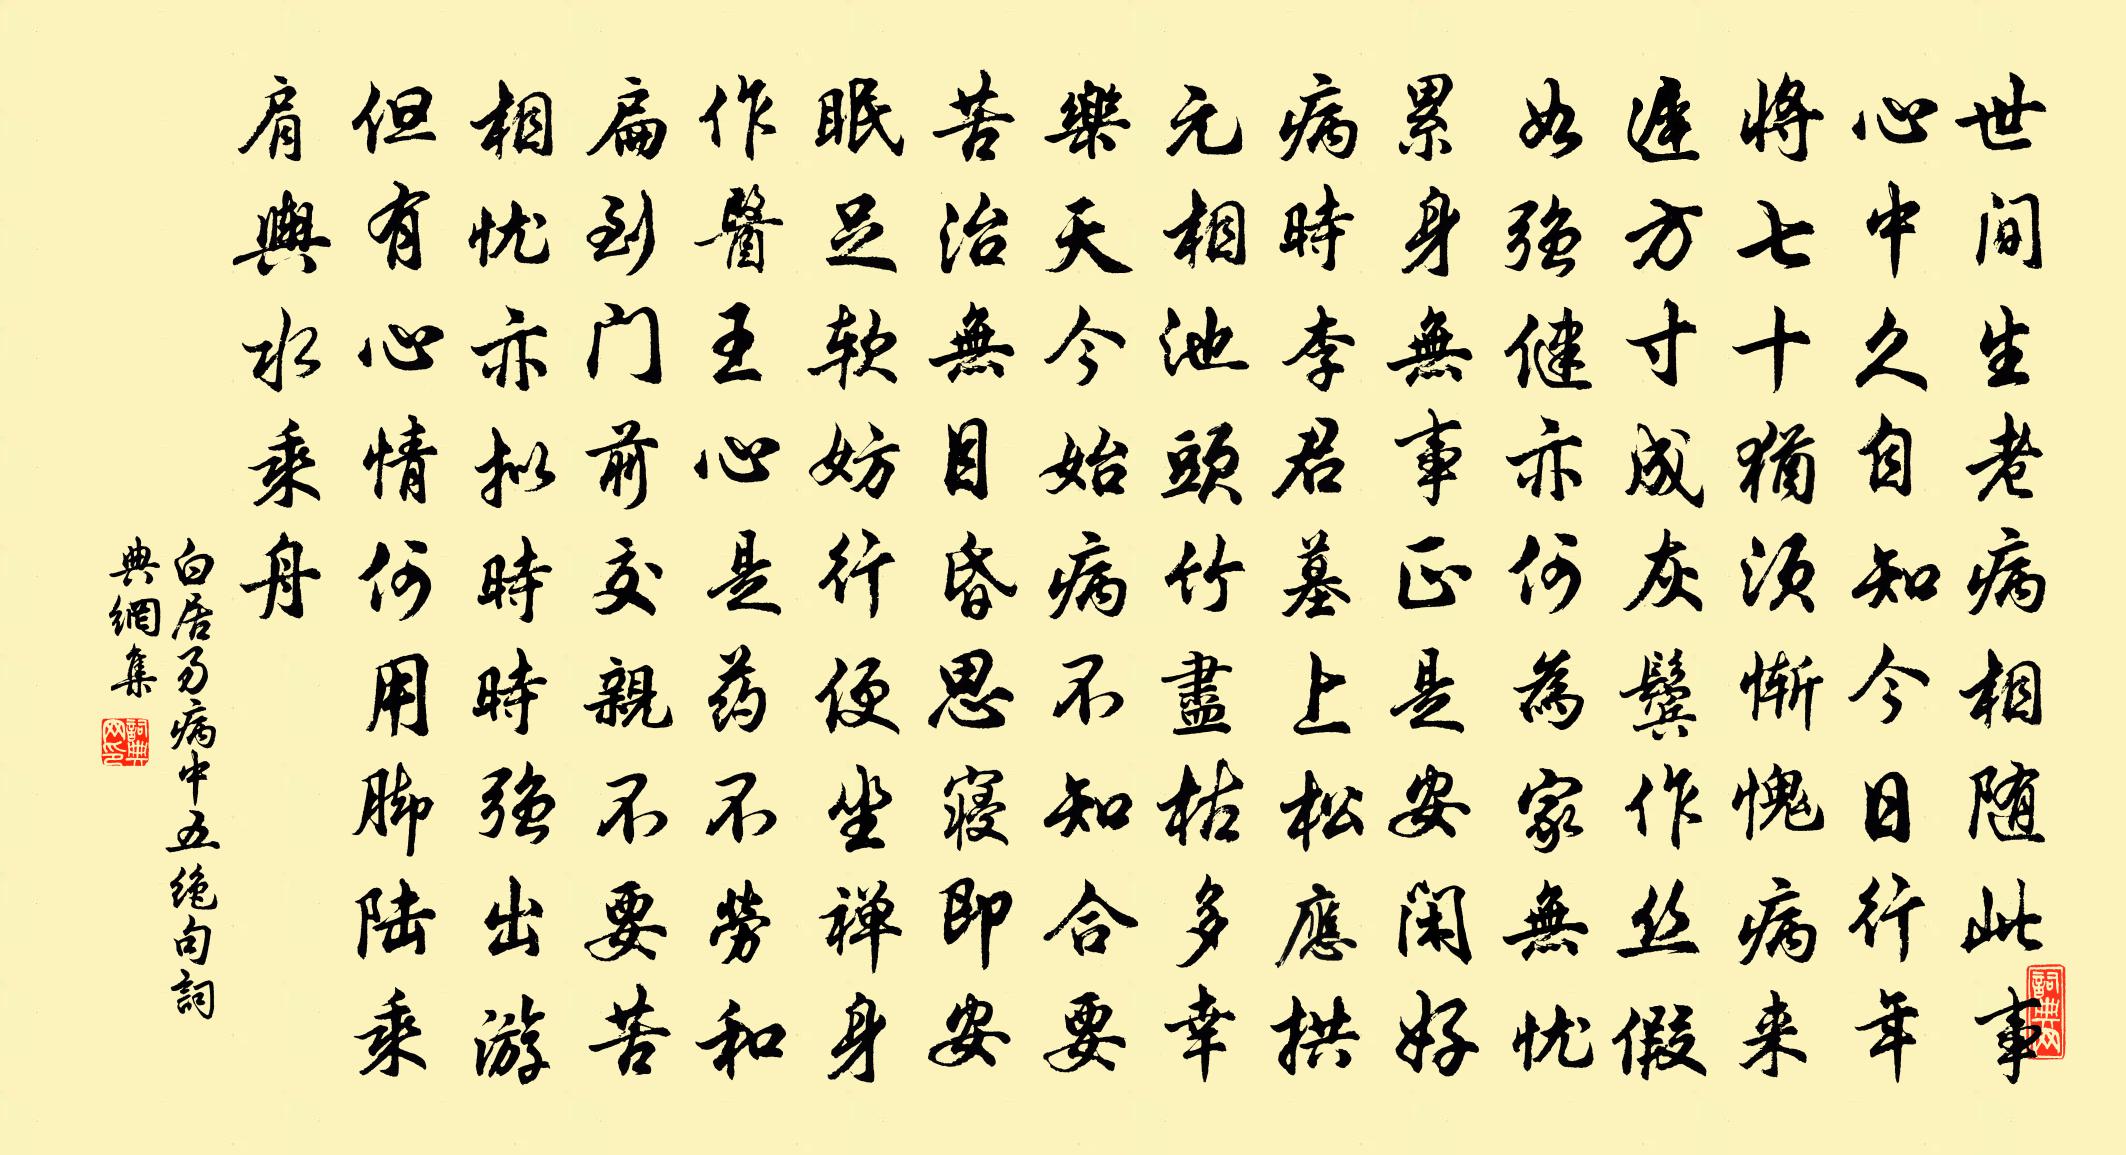 世间生老病相随此事
心中久自知今日行年
将七十猶须惭愧病来
遲方寸成灰鬓作丝假
如强健亦何為家無忧
累身無事正是安闲好
病時李君墓上松應拱
元相池頭竹盡枯多幸
樂天今始病不知合要
苦治無目昏思寝即安
眠足软妨行便坐禅身
作醫王心是药不劳和
扁到门前交親不要苦
相忧亦拟時時强出游
但有心情何用脚陆乘
肩輿水乘舟
白居易病中五绝句詞
典網集
詞典网印
詞典网